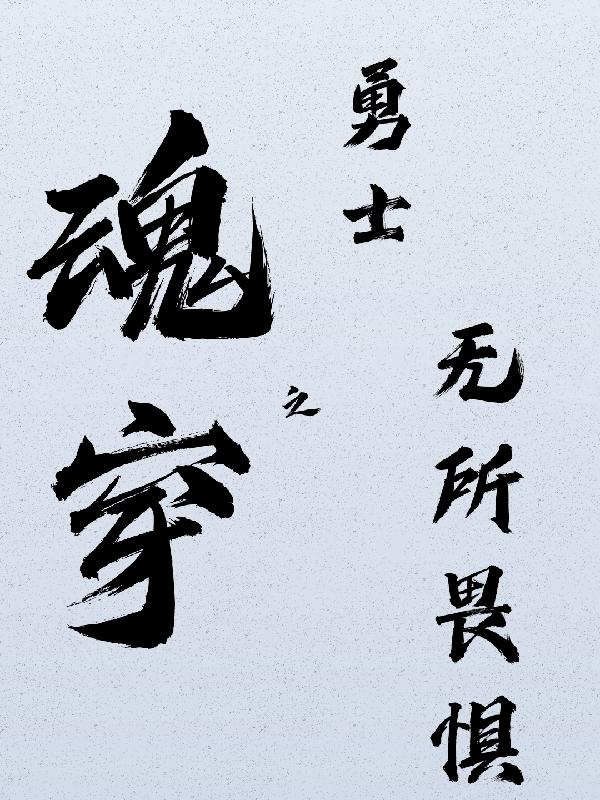 无所畏惧
勇士
之
魂穿